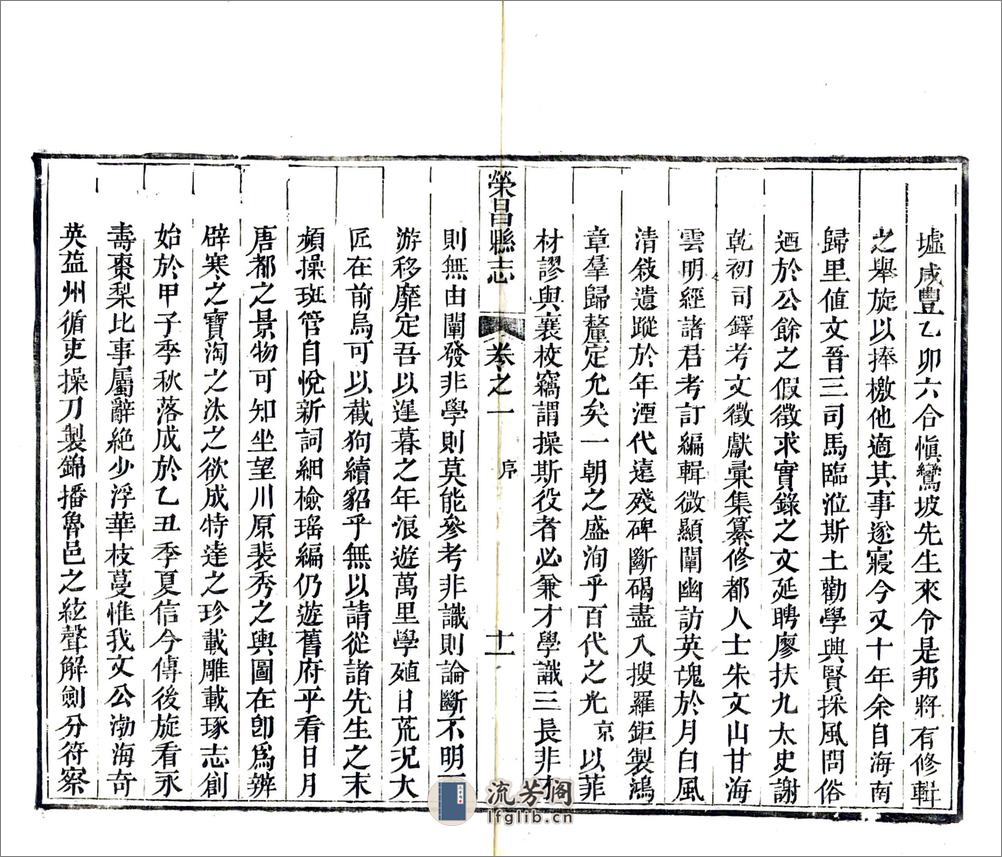 墟咸豐乙卯六合愼鸞坡先生來令是邦將有修輯
之舉旋以捧檄他適其事遂寢今又十年余自海南
歸里值文晉三司馬臨涖斯土勸學興賢採風問俗
迺於公餘之假徵求實錄之文延聘廖扶九太史謝
乾初司鐸考文徵獻彙集纂修都人士朱文山甘海
雲明經諸君考訂編輯微顯闡幽訪英魂於月白風
清敍遺蹤於年湮代遠殘碑斷碣盡入搜羅鉅製鴻
章羣歸釐定允矣一朝之盛洵乎百代之光京以菲
材謬與襄校竊謂操斯役者必兼才學識三長非才
榮昌縣志 卷之一 序 十一
則無由闡發非學則莫能參考非識則論斷不明
游移靡定吾以遲暮之年浪遊萬里學殖日荒况大
匠在前烏可以截狗續貂乎無以請從諸先生之末
頻操斑管自悅新詞細檢瑤編仍遊舊府平看日月
唐都之景物可知坐望川原裴秀之輿圖在卽爲辨
辟寒之寶淘之汰之欲成特達之珍載雕載琢志創
始於甲子季秋落成於乙丑季夏信今傳後旋看永
壽棗梨比事屬辭絶少浮華枝蔓惟我文公渤海奇
英益州循吏操刀製錦播魯邑之絃聲解劍分符察
流芳阁
lfglib.cn